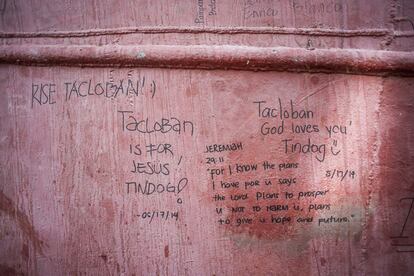 Enrico Blanco
RISE TACLOBAN! :)
TACLOBAN
IS FOR
JESUS!
TINDOG!
-06/17/14
Tacloban
God loves you
Tindog
5/17/14
JEREMIAH
29:11
"For I know the plans
I have for u says
the Lord Plans to prosper
u not to harm u, plans
to give u hope and future."